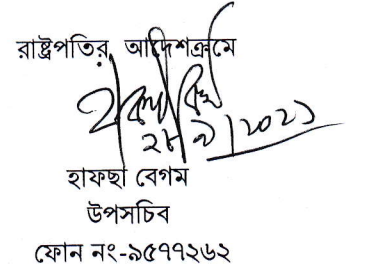 রাষ্ট্রপতির আদেশক্রমে
২৮/৯/২০২১
হাফছা বেগম
উপসচিব
ফোন নং-৯৫৭৭২৬২